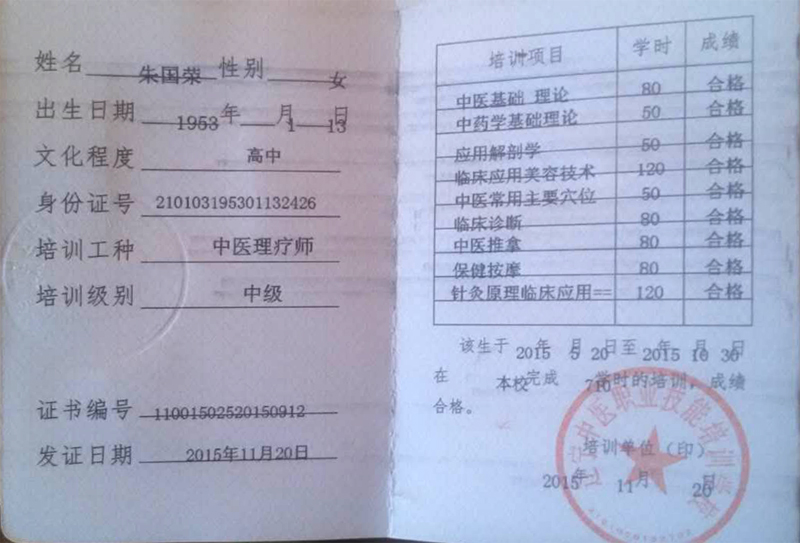 姓名 朱国荣 性别 女
出生日期 1953年 1月 13日
文化程度 高中
身份证号 210103195301132426
培训工种 中医理疗师
培训级别 中级
证书编号 11001502520150912
发证日期 2015年11月20日
培训项目 学时 成绩
中医基础 理论 80 合格
中药学基础理论 50 合格
应用解剖学 50 合格
临床应用美容技术 120 合格
中医常用主要穴位 50 合格
临床诊断 80 合格
中医推拿 80 合格
保健按摩 80 合格
针灸原理临床应用== 120 合格
该生于2015年5月20日至2015年10月30日
在 本校 完成 710 学时的培训，成绩
合格。
中医职业技能培训
培训单位（印）
2015年 11月 20日